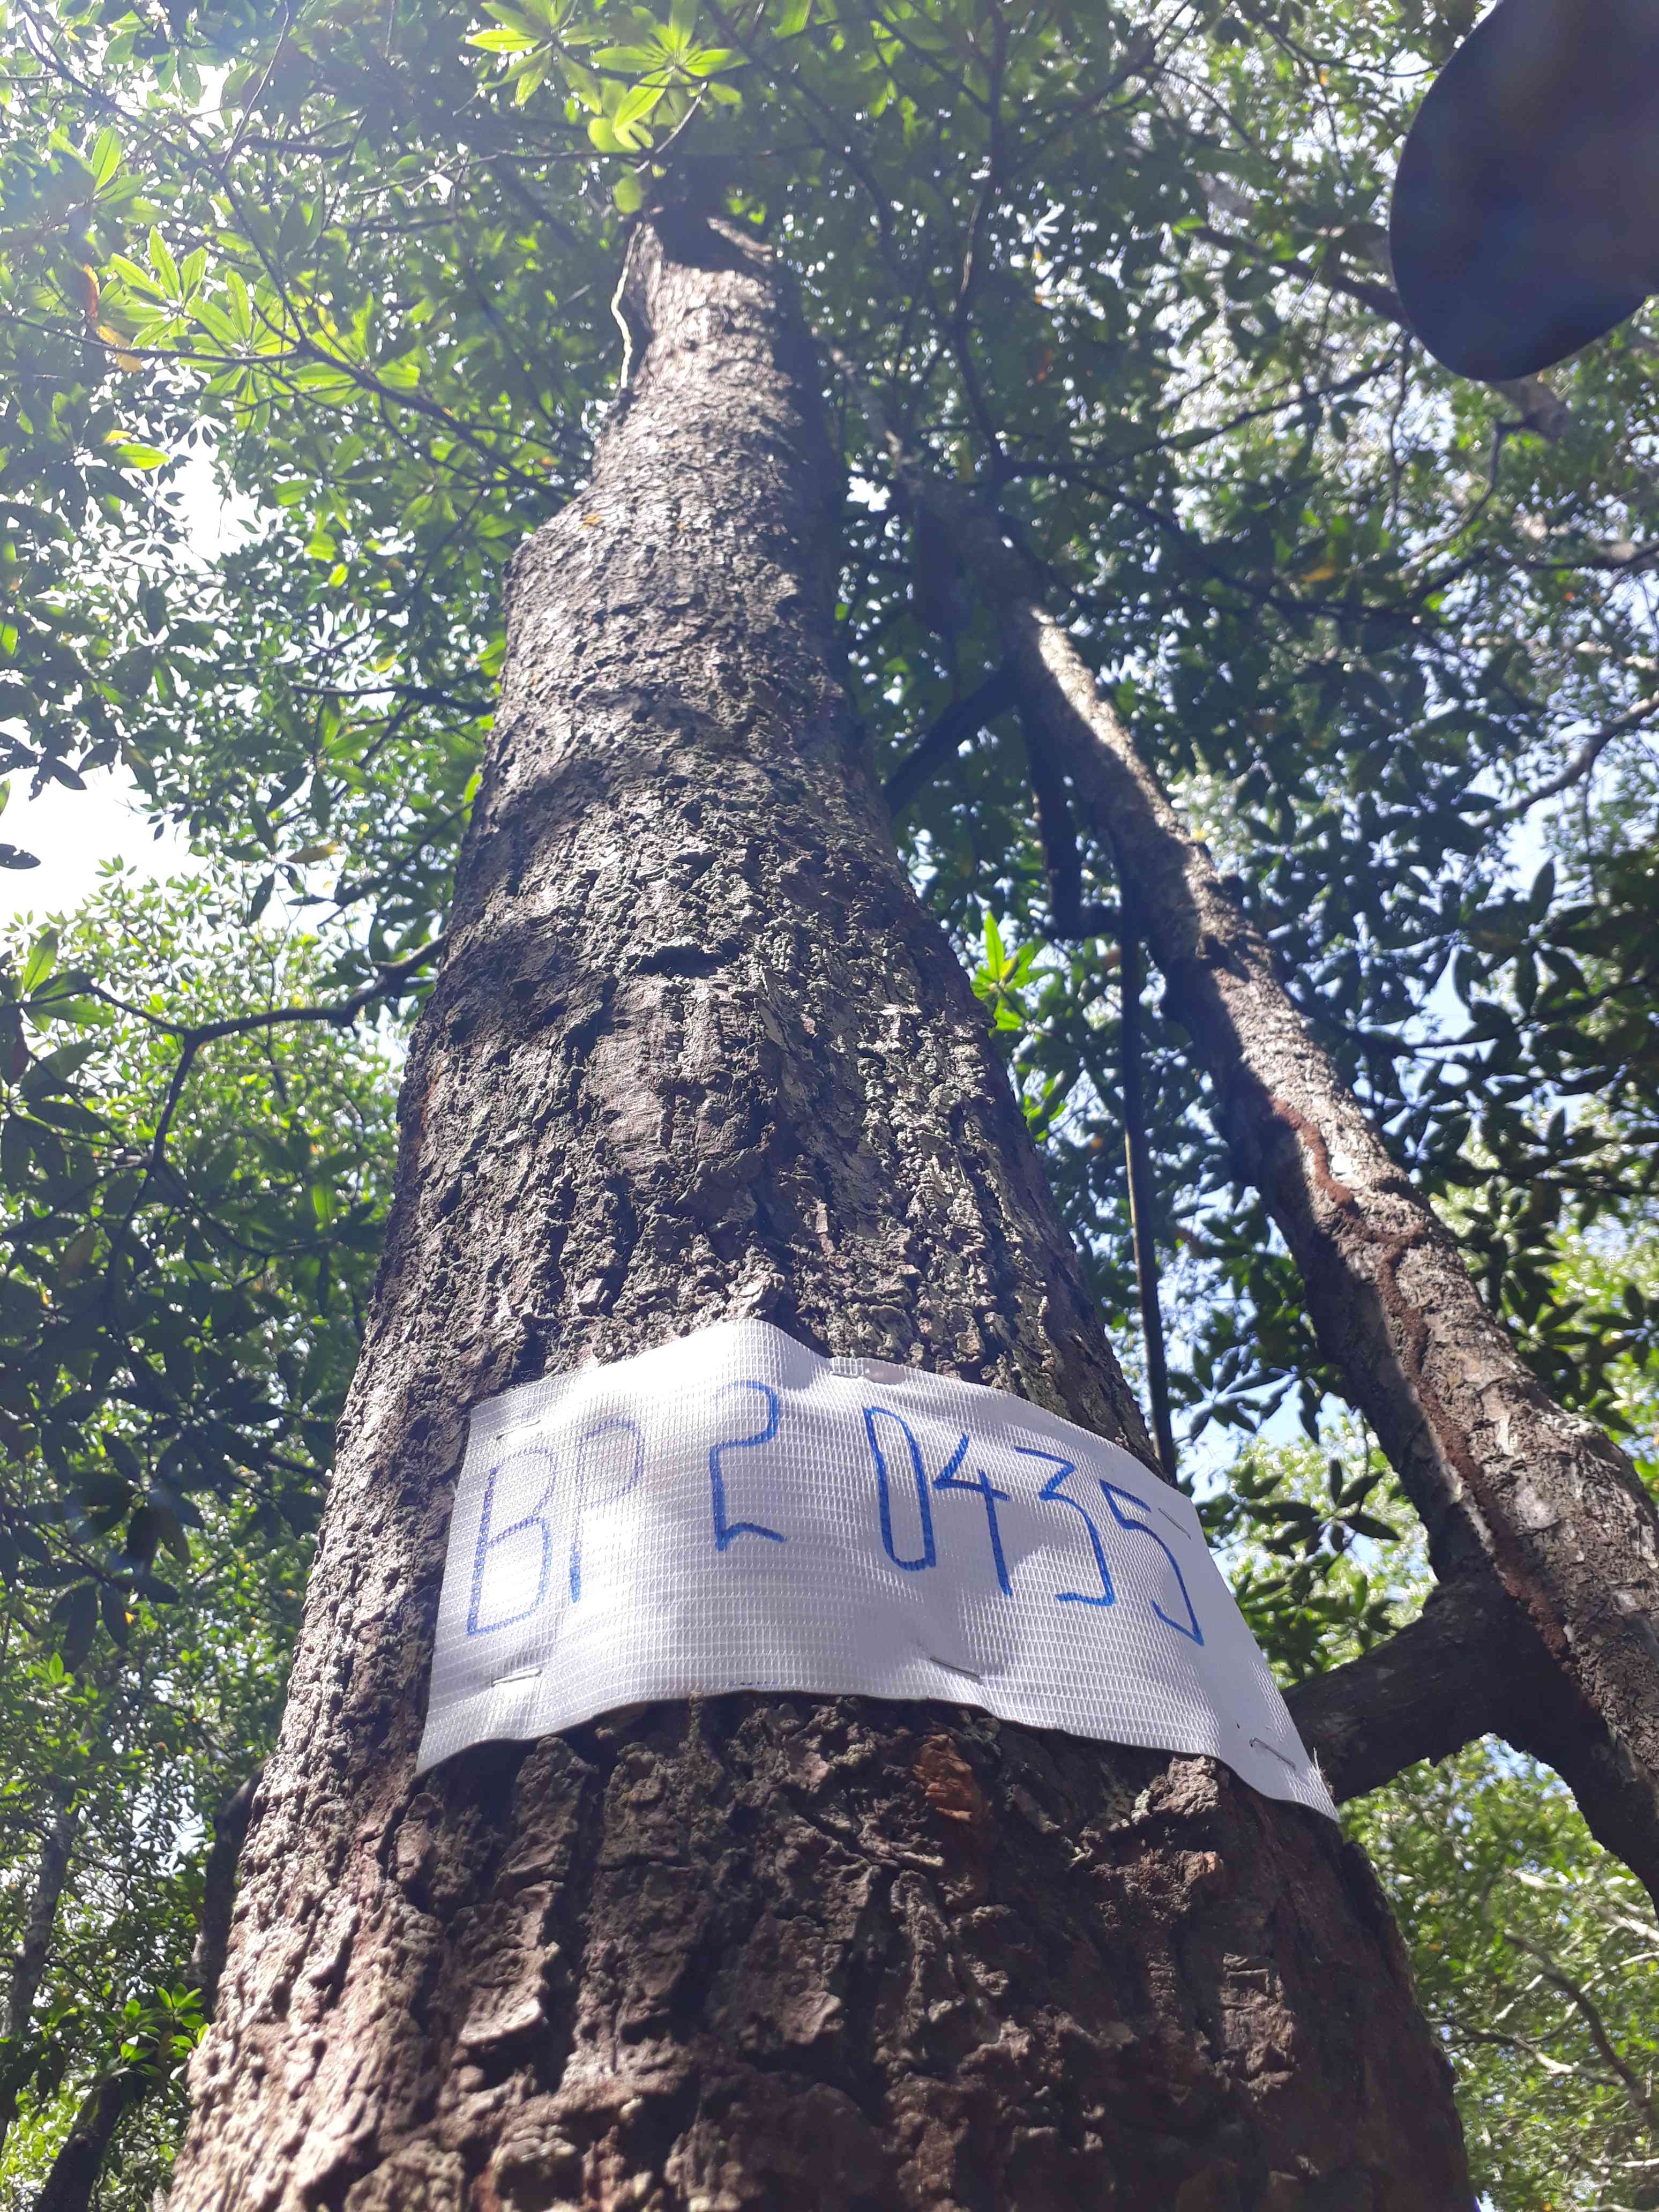 BP 2 0435